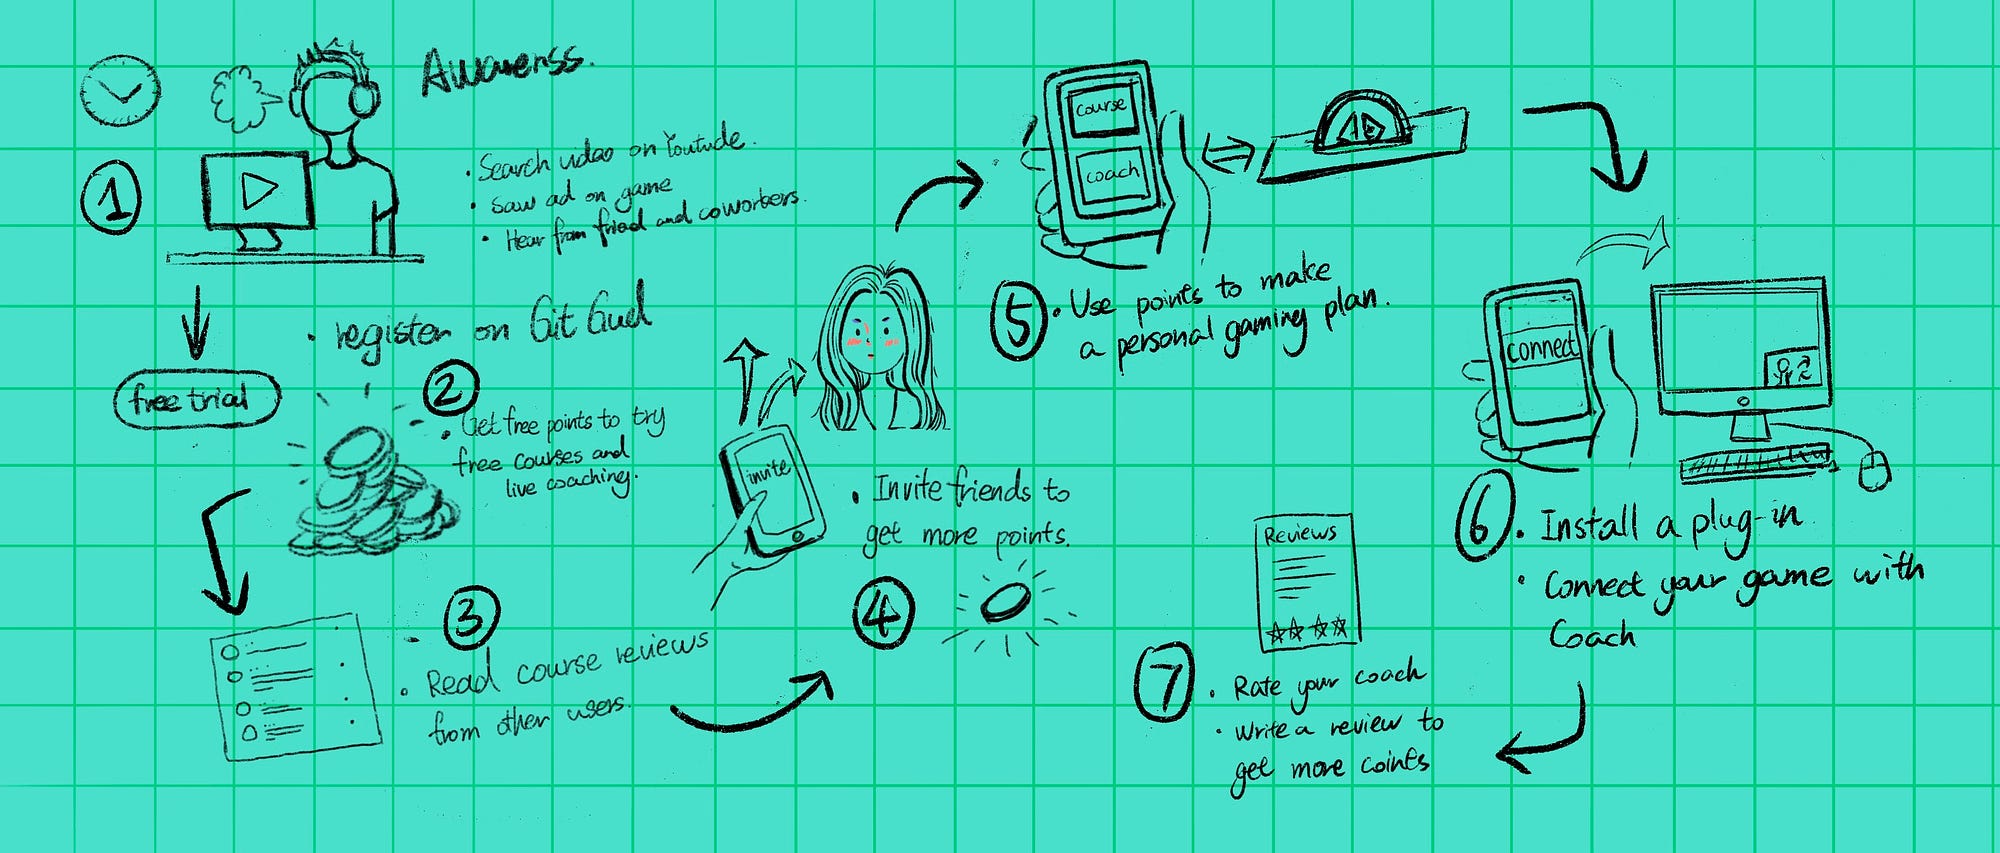 1
Awarenss.
• Search video on Youtude.
• Saw ad on game
• Hear from friend and coworkers.
free trial
• register on Git Gud
2
• Get free points to try
free courses and
live coaching.
3
• Read course reviews
from other users.
invite
• Invite friends to
get more points.
4
course
coach
5
• Use points to make
a personal gaming plan.
connect
6
• Install a plug-in
• Connect your game with
Coach
Reviews
7
• Rate your coach
• Write a review to
get more coints